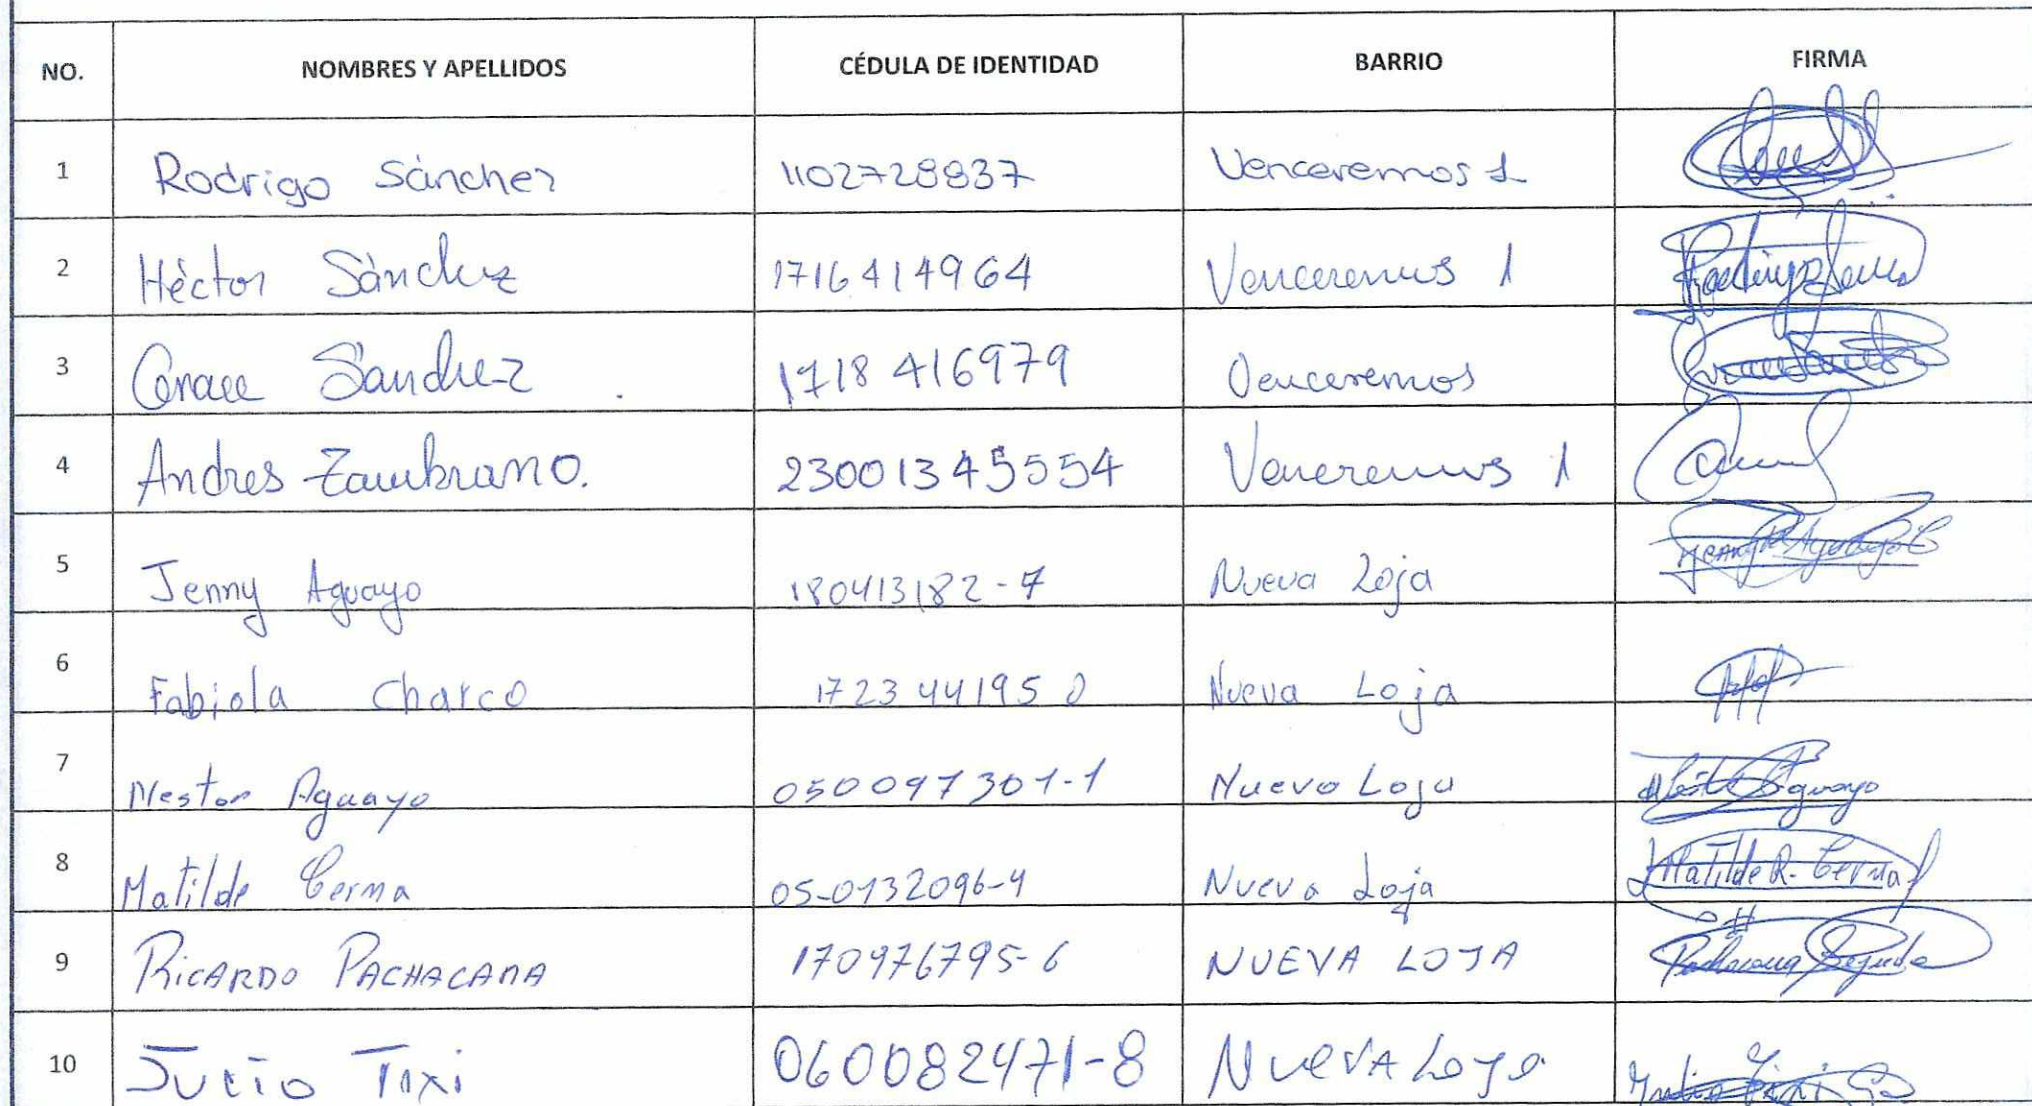 NO. NOMBRES Y APELLIDOS CÉDULA DE IDENTIDAD BARRIO FIRMA
1 Rodrigo Sánchez 1102728837 Venceremos 1
2 Héctor Sánchez 1716414964 Venceremos 1
3 Sánchez 1718416979 Venceremos
4 Andres Zambrano. 23001345554 Venceremos 1
5 Jenny Aguayo 180413182-7 Nueva Loja
6 Fabiola Charco 1723441950 Nueva Loja
7 Nestor Aguayo 050097301-1 Nueva Loja Aguayo
8 Matilde Cerma 05-0132096-4 Nueva Loja Matilde R. Cerma
9 RICARDO PACHACAMA 170976795-6 NUEVA LOJA
10 Julio Tixi 060082471-8 NUEVA Loja